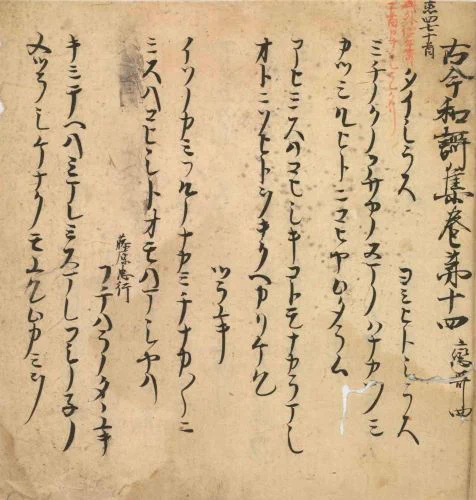 古今和謌集巻第十四 戀哥四
タイシラス ヨミヒトシラス
ミチノクノアサカノヌマノハナカツミ
カツミルヒトニコヒヤワタラム
アヒミスハコヒシキコトモナカラマシ
オトニソヒトヲキクヘカリケル
ツラユキ
イソノカミフルノナカミチナカ〳〵ニ
ミスハコヒシトオモハマシヤハ
藤原忠行
フチハラノタヽユキ
キミテヘハミマレミスマレフシノ子ノ
メツラシケナクモユルワカコヒ